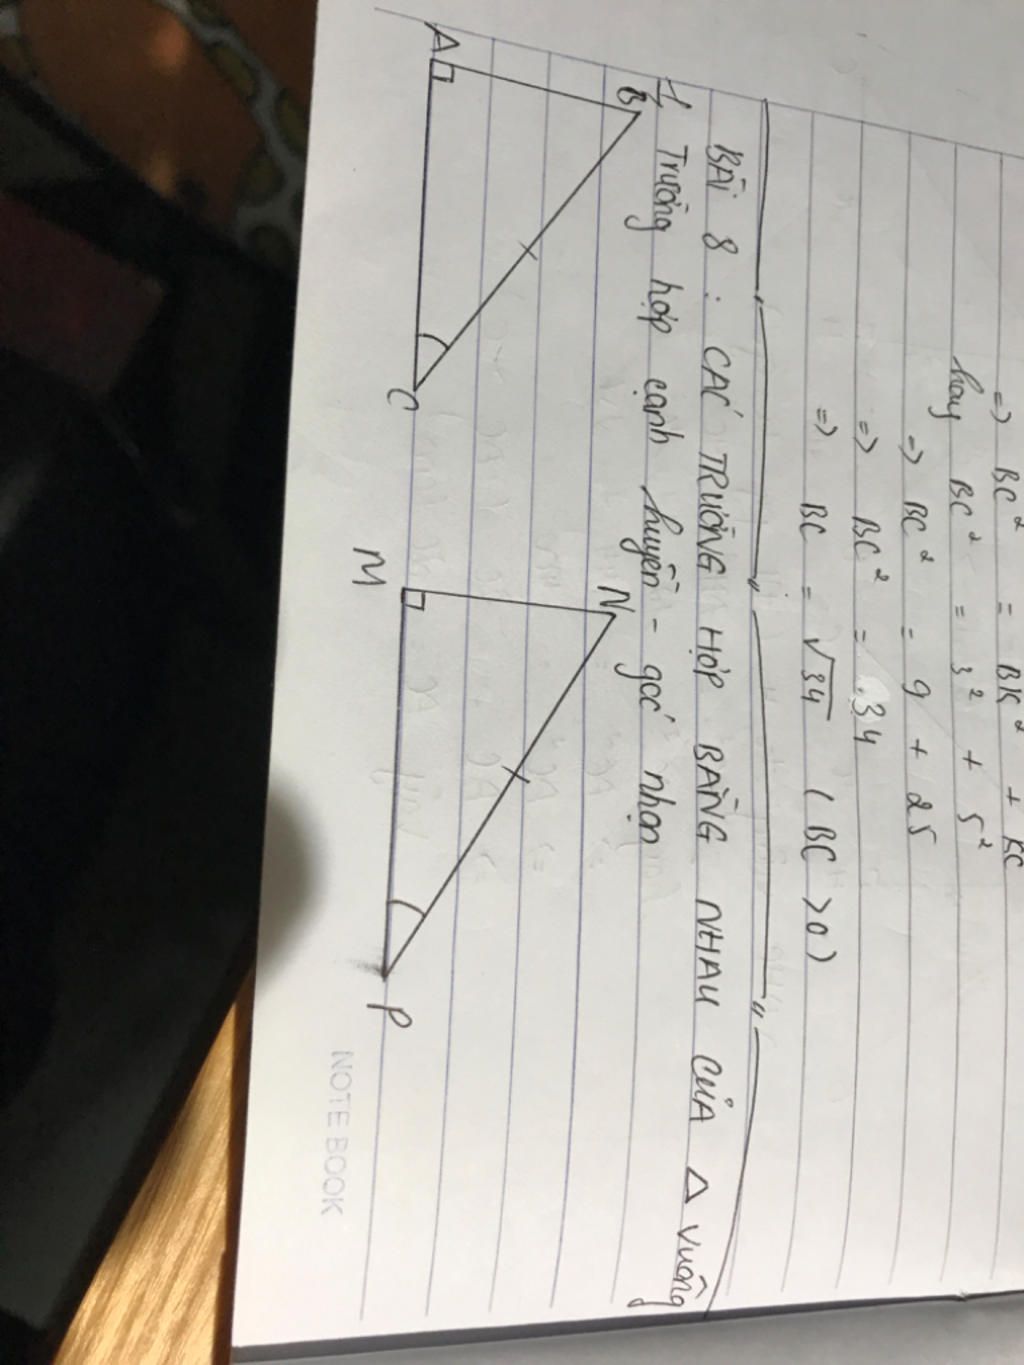 => BC² = BK² + KC
hay BC² = 3² + 5²
=> BC² = 9 + 25
=> BC² = 34
=> BC = √34 ( BC > 0 )
BÀI 8 : CÁC TRƯỜNG HỢP BẰNG NHAU CỦA Δ vuông
1/ Trường hợp cạnh huyền - góc nhọn
B
N
A
C
M
P
NOTE BOOK